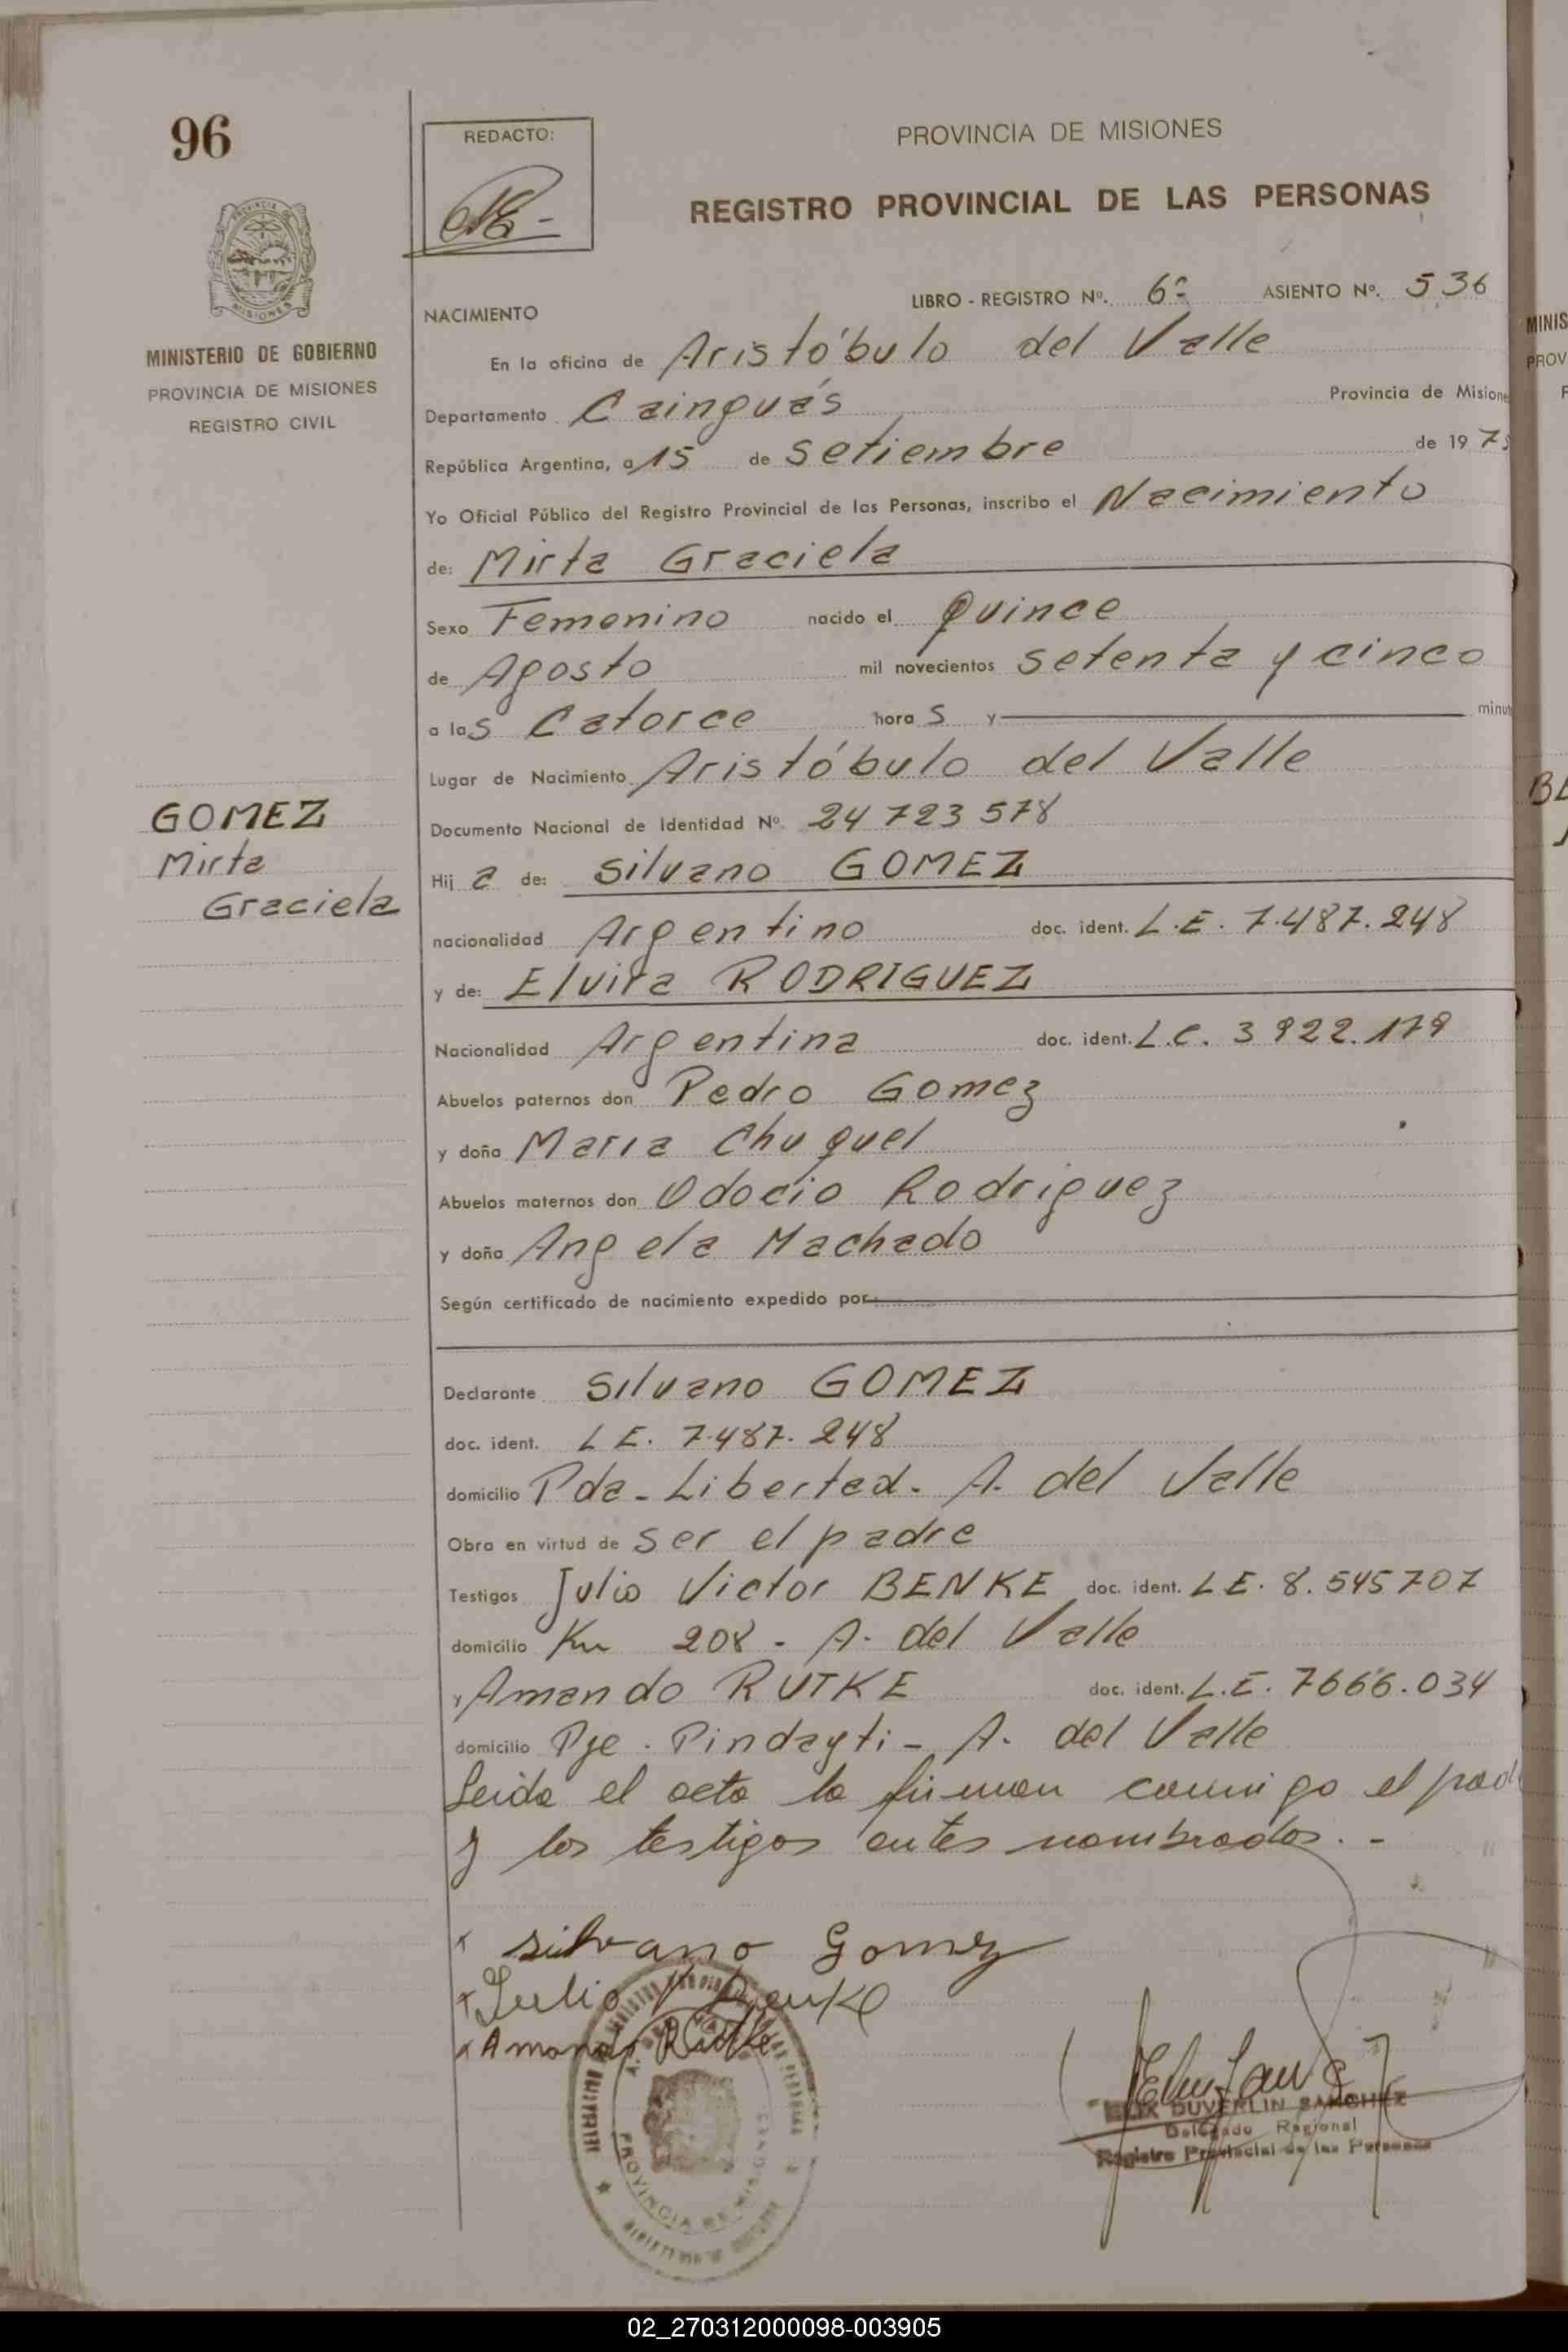 96
REDACTO:
PROVINCIA DE MISIONES
REGISTRO PROVINCIAL DE LAS PERSONAS
MINISTERIO DE GOBIERNO
PROVINCIA DE MISIONES
REGISTRO CIVIL
LIBRO - REGISTRO Nº. 6º ASIENTO Nº. 536
NACIMIENTO
En la oficina de Aristóbulo del Valle
Departamento Cainguás Provincia de Misione
República Argentina, a 15 de Setiembre de 19 75
Yo Oficial Público del Registro Provincial de las Personas, inscribo el Nacimiento
de: Mirta Graciela
Sexo Femenino nacido el Quince
de Agosto mil novecientos setenta y cinco
a las Catorce horas y minut
Lugar de Nacimiento Aristóbulo del Valle
Documento Nacional de Identidad Nº. 24 723 578
GOMEZ
Mirta
Graciela
Hija de: Silvano GOMEZ
nacionalidad Argentino doc. ident. L.E. 7.487.248
y de: Elvira RODRIGUEZ
Nacionalidad Argentina doc. ident. L.C. 3 922.179
Abuelos paternos don Pedro Gomez
y doña Maria Chuquel
Abuelos maternos don Odocio Rodriguez
y doña Angela Machado
Según certificado de nacimiento expedido por:
Declarante Silvano GOMEZ
doc. ident. L E. 7.487. 248
domicilio Pda - Libertad. A. del Valle
Obra en virtud de ser el padre
Testigos Julio Victor BENKE doc. ident. L E. 8. 545 707
domicilio Km 208 - A. del Valle
y Amando RUTKE doc. ident. L.E. 7666.034
domicilio Pje. Pindayti - A. del Valle
Leida el acta la firman conmigo el pad
y los testigos antes nombrados. -
x silvano Gomez
x Julio V Benke
x Amando Rutke
FELIX DUVERLIN SANCHEZ
Delegado Regional
Registro Provincial de las Personas
PROVINCIA DE MISIONES
MINIS
PROV
02_270312000098-003905